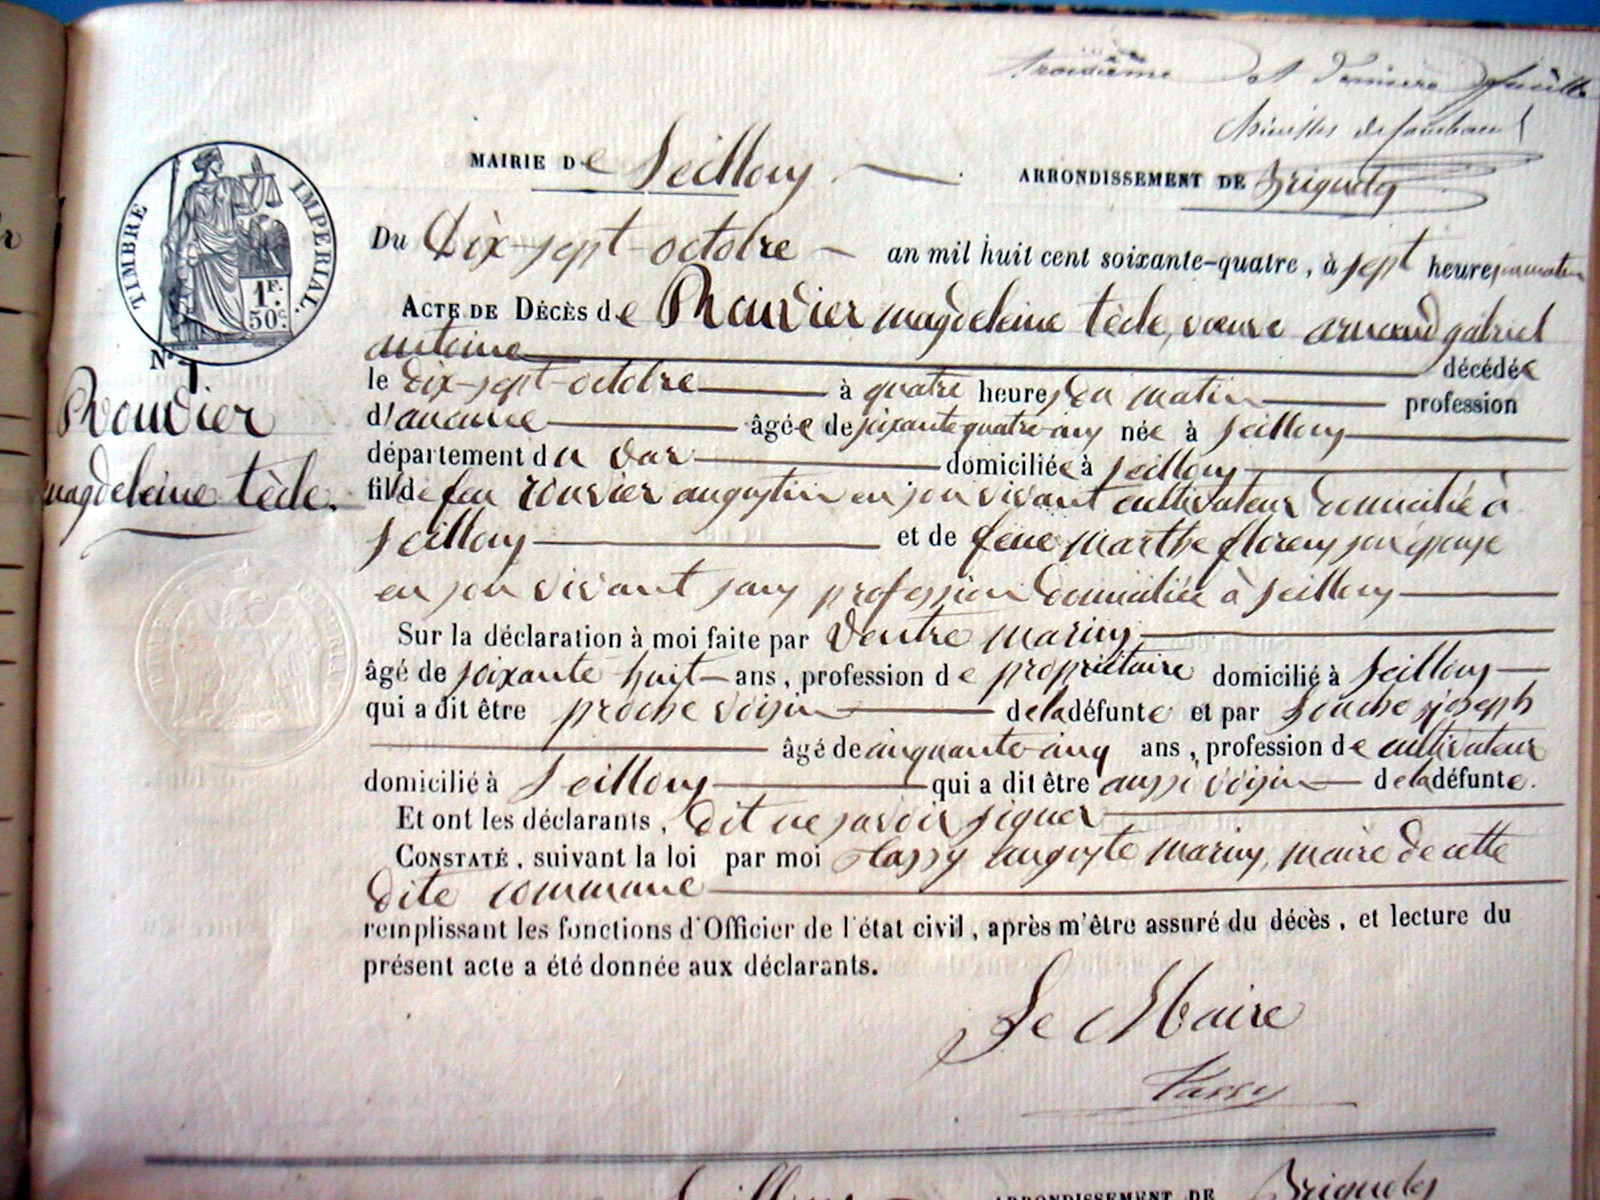 troisième et dernière feuille
MAIRIE De Seillons ARRONDISSEMENT DE Brignoles
TIMBRE IMPERIAL.
1F. 50c.
Du Dix-sept octobre an mil huit cent soixante-quatre, à sept heures du matin
ACTE DE DÉCÈS de Rouvier magdeleine tècle, veuve arnaud gabriel
antoine décédée
N° 7.
Rouvier
magdeleine tècle.
le dix-sept-octobre à quatre heures du matin profession
d'aucune âgée de soixante quatre ans née à Seillons
département du var domiciliée à Seillons
fille de feu rouvier augustin en son vivant cultivateur domicilié à
Seillons et de feue marthe florens son épouse
en son vivant sans profession domiciliée à Seillons
Sur la déclaration à moi faite par Ventre marius
âgé de soixante huit ans, profession de propriétaire domicilié à Seillons
qui a dit être proche voisin de la défunte et par Souche joseph
âgé de cinquante cinq ans, profession de cultivateur
domicilié à Seillons qui a dit être aussi voisin de la défunte.
Et ont les déclarants, dit ne savoir signer
CONSTATÉ, suivant la loi par moi Tassy auguste marius, maire de cette
dite commune
remplissant les fonctions d'Officier de l'état civil, après m'être assuré du décès, et lecture du
présent acte a été donnée aux déclarants.
Le Maire
Tassy
Seillons ARRONDISSEMENT DE Brignoles